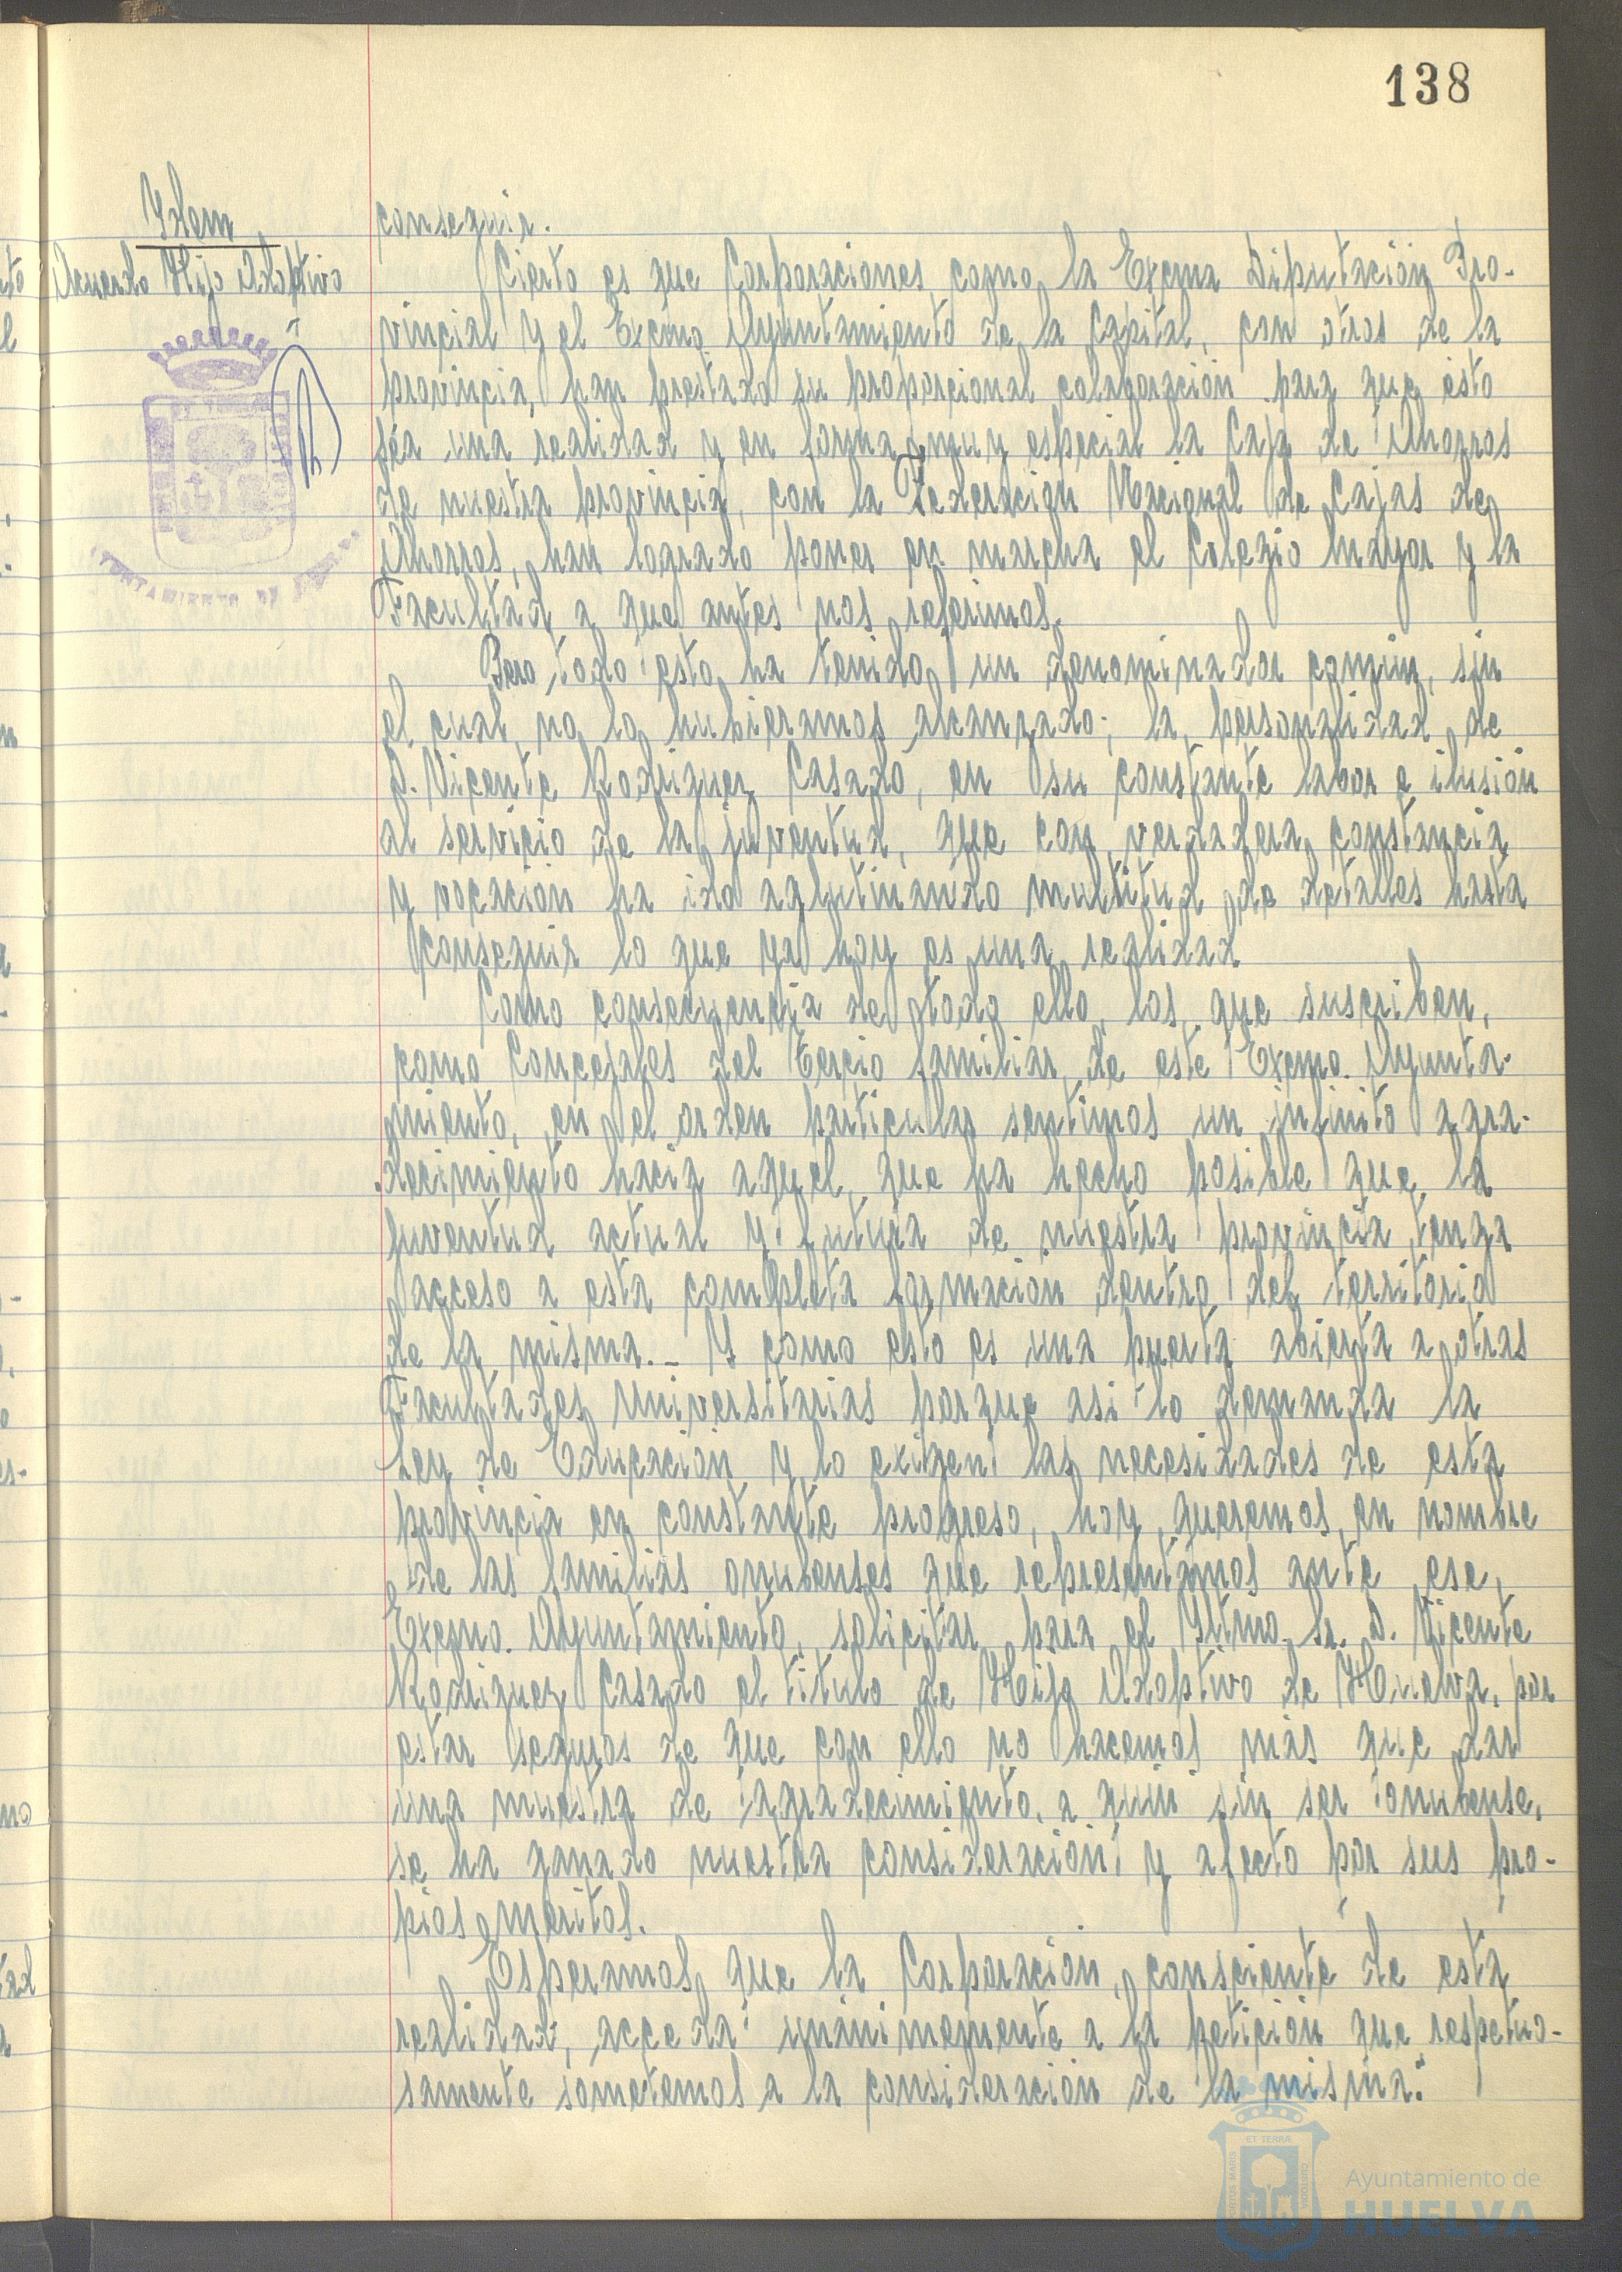 138
Ydem
Acuerdo Hijo Adoptivo
conseguir.
Cierto es que Corporaciones como la Excma Diputación Pro-
vincial y el Excmo. Ayuntamiento de la Capital, con otros de la
provincia, han prestado su proporcional colaboración para que esto
sea una realidad y en forma muy especial la Caja de Ahorros
de nuestra provincia, con la Federación Nacional de Cajas de
Ahorros, han logrado poner en marcha el Colegio Mayor y la
Facultad a que antes nos referimos.
Pero todo esto ha tenido un denominador común, sin
el cual no lo hubieramos alcanzado; la personalidad de
D. Vicente Rodriguez Casado, en su constante labor e ilusión
al servicio de la juventud, que con verdadera constancia
y vocación ha ido aglutinando multitud de detalles hasta
conseguir lo que ya hoy es una realidad
Como consecuencia de todo ello, los que suscriben,
como Concejales del Tercio familiar de este Excmo. Ayunta-
miento, en el orden particular sentimos un infinito agra-
decimiento hacia aquel que ha hecho posible que la
juventud actual y futura de nuestra provincia tenga
acceso a esta completa formación dentro del territorio
de la misma.- Y como esto es una puerta abierta a otras
Facultades Universitarias porque asi lo demanda la
Ley de Educación y lo exigen las necesidades de esta
provincia en constante progreso, hoy queremos, en nombre
de las familias onubenses que representamos ante ese
Excmo. Ayuntamiento, solicitar para el Yltmo. Sr. D. Vicente
Rodriguez Casado el titulo de Hijo Adoptivo de Huelva, por
estar seguros de que con ello no hacemos más que dar
una muestra de agradecimiento, a quin sin ser onubense,
se ha ganado nuestra consideración y afecto por sus pro-
pios meritos.
Esperamos que la Corporación, consciente de esta
realidad, acceda unanimemente a la petición que respetuo-
samente sometemos a la consideración de la misma."
AYUNTAMIENTO DE
ET TERRÆ
PORTUS MARIS
CUSTODIA
Ayuntamiento de
HUELVA